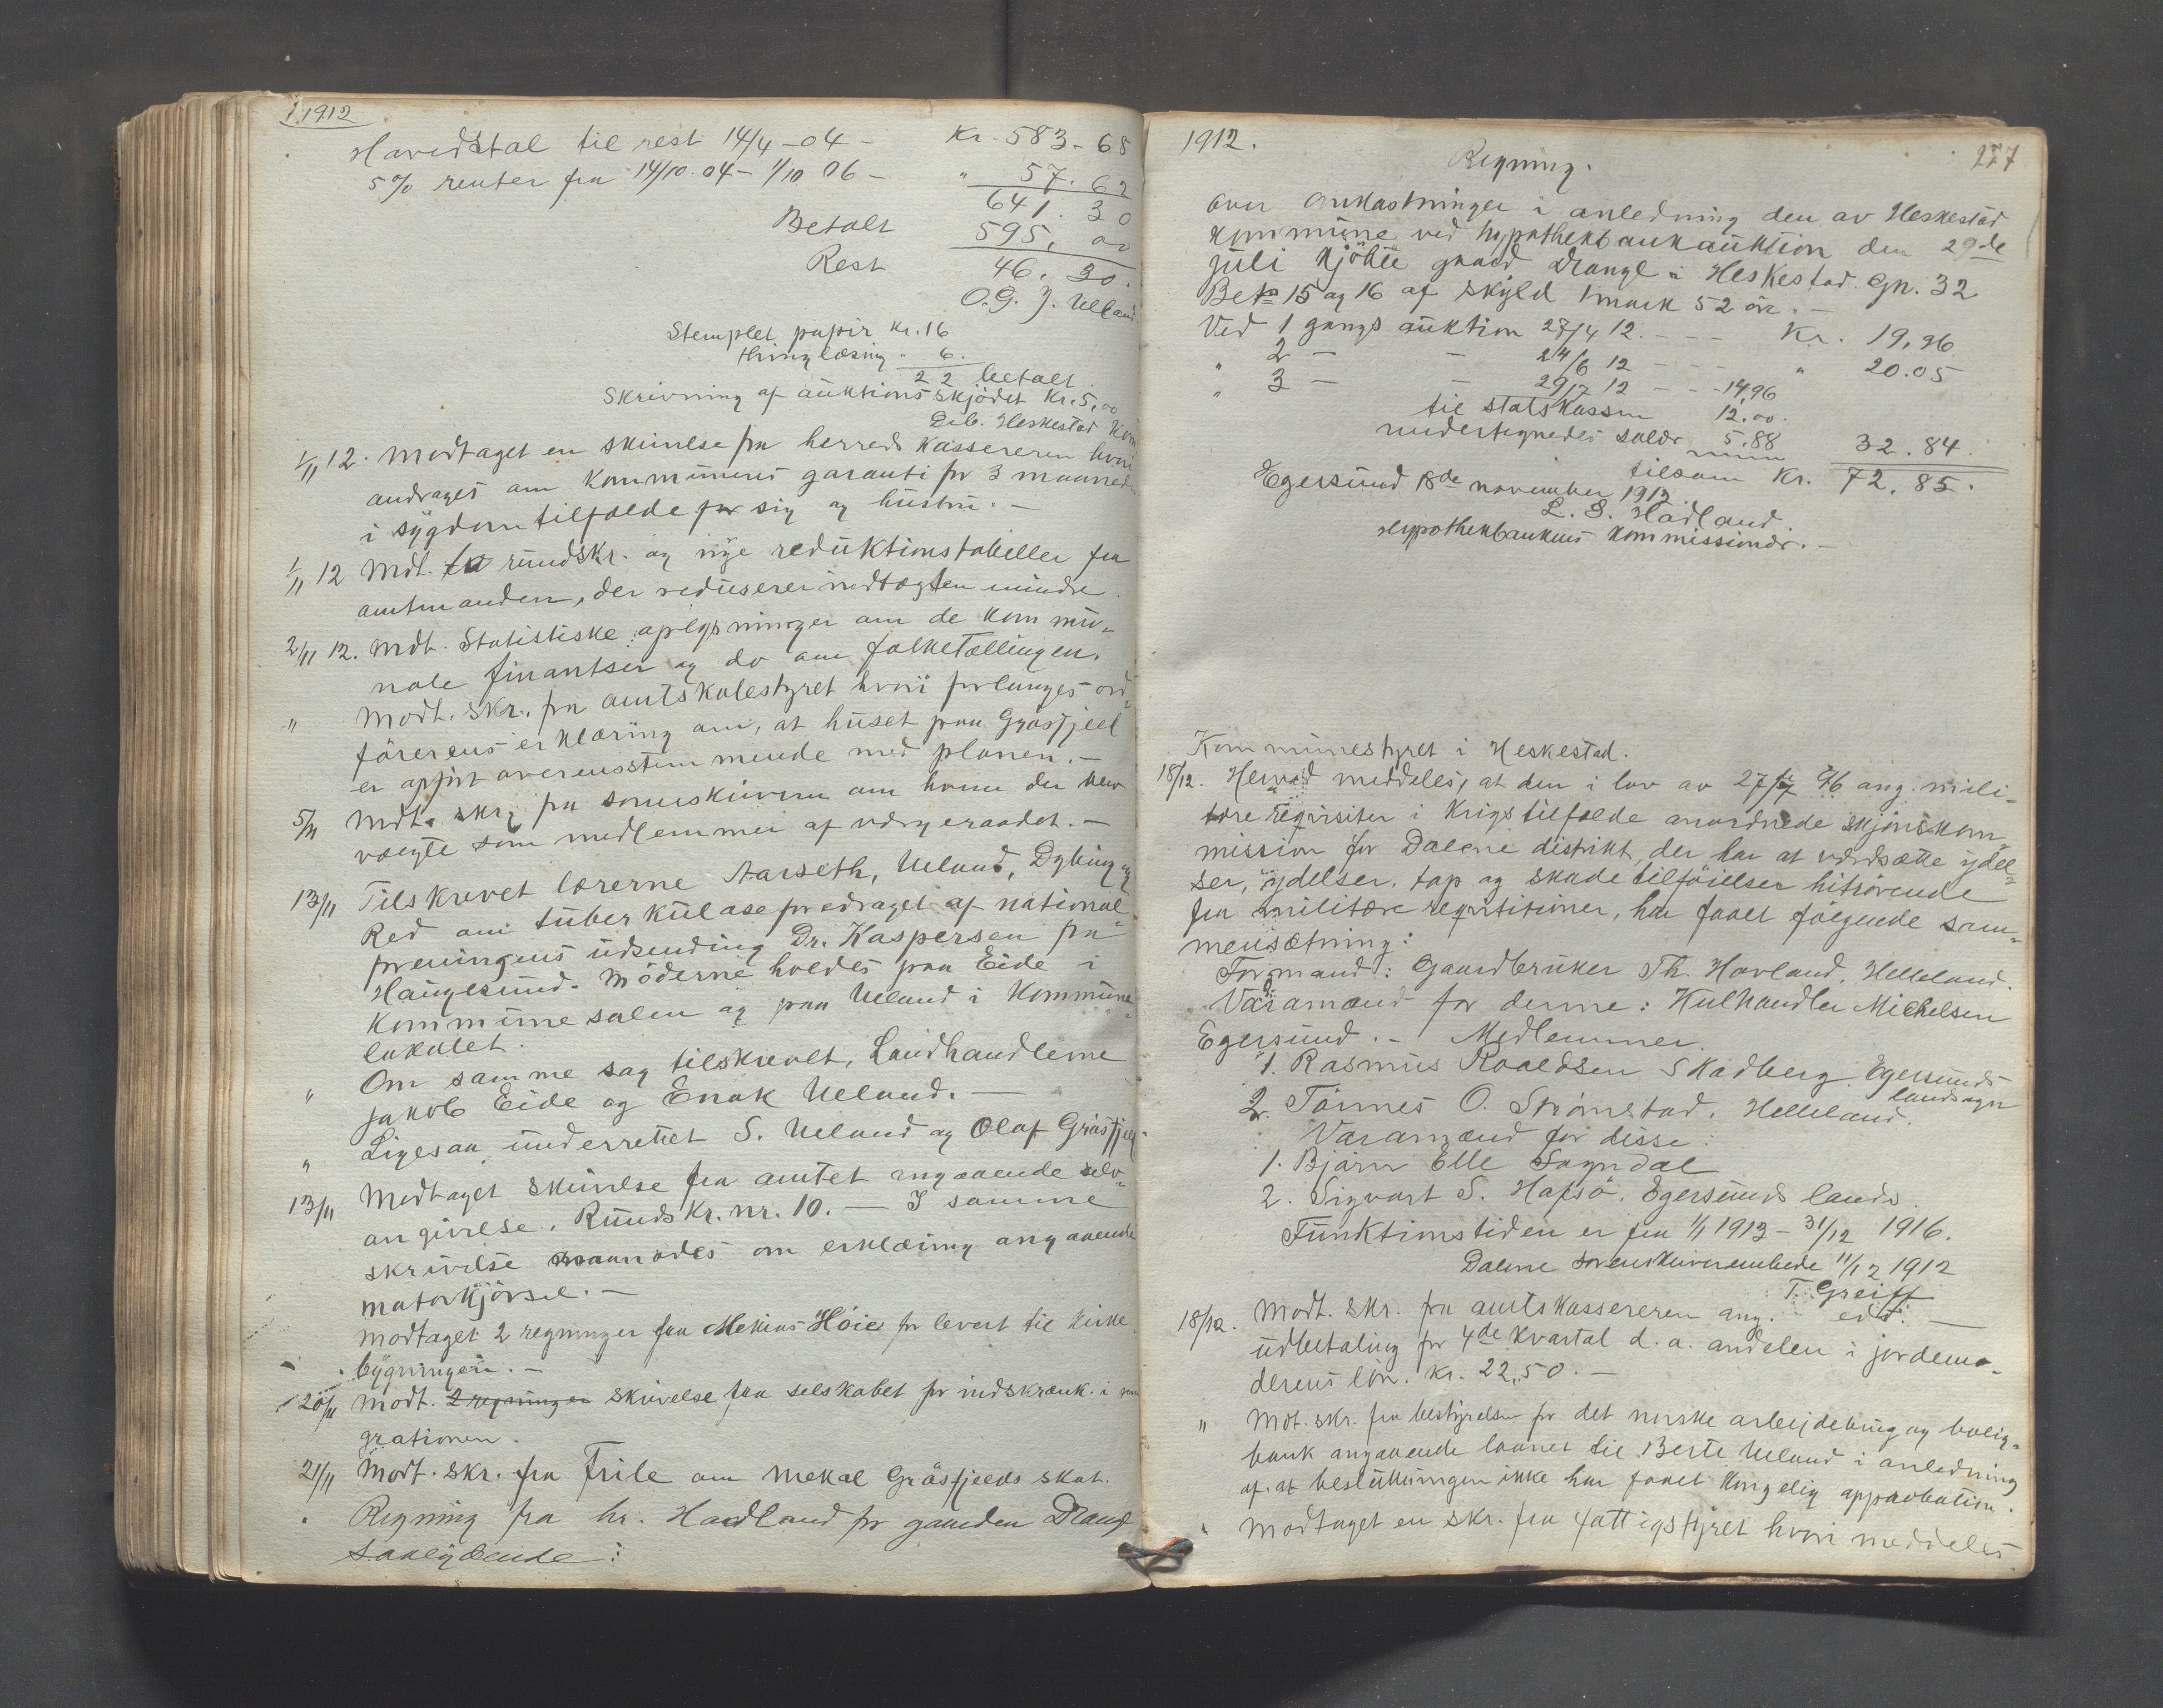 1912
Hovedstal til rest 14/4 - 04 - Kr. 583 - 68
5% renter fra 14/10. 04 - 1/10 06 - " 57. 62
641. 30
Betalt 595. 00
Rest 46. 30.
O. G. J. Ueland
Stemplet papir Kr. 16
thinglæsing " 6.
22 betalt.
Skrivning af auktionsskjödet Kr. 5,00
Deb. Heskestad Kom
1/11 12. Modtaget en skrivelse fra herredskassereren hvori
andrages om kommunens garanti for 3 maaneder
i sygdomtilfælde for sig og hustru. -
1/11 12 Mdt. rundskr. og nye reduktionstabeller fra
amtmanden, der reduserer indtægten mindre.
2/11 12. Mdt. Statistiske oplysninger om de kommu-
nale finantser og do om folketællingen.
" Modt. skr. fra amtskolestyret hvori forlanges ord-
förerens erklæring om, at huset paa Gräsfjeld
er opfört overensstemmende med planen. -
5/11 Mdt. skr. fra sorenskriveren om hvem der blev
valgte som medlemmer af værgeraadet. -
13/11 Tilskrevet lærerne Aarseth, Ueland, Dybing og
Red om tuberkulose foredraget af national-
foreningens udsending Dr. Kaspersen fra
Haugesund. Möderne holdes paa Eide i
Kommunesalen og paa Ueland i Kommune-
lokalet.
" Om samme sag tilskrevet, Landhandlerne
Jakob Eide og Enok Ueland. -
" Ligesaa underrettet S. Ueland og Olaf Gräsfjeld.
13/11 Modtaget skrivelse fra amtet angaaende selv-
angivelse. Rundskr. nr. 10. - I samme
skrivelse anmodes om erklæring angaaende
motorkjörsel. -
Modtaget 2 regninger fra Mekius Höie for levert til kirke
bygningen. -
20/11 Modt. 2 regninger skrivelse fra selskabet for indskrænk. i emi
grationen.
21/11 Modt. skr. fra Frile om Mekal Gräsfjelds skat.
Regning fra hr. Hadland for gaarden Drangl
saalydende:
1912. 277
Regning.
over omkostninger i anledning den av Heskestad
kommune ved hypothekbankauktion den 29de
juli kjöbte gaard Drangl i Heskestad Gn. 32
Bno 15 og 16 af skyld 1 mark 52 öre. -
Ved 1 gangs auktion 27/4 12. - - - Kr. 19,96
" 2 - - 24/6 12 - - - " 20.05
" 3 - - 29/7 12 - - - 14,96
til statskassen 12.00.
undertegnedes salær 5.88 32.84.
tilsam Kr. 72.85.
Egersund 18de november 1912.
L. S. Hadland.
Hypothekbankens kommissionær. -
Kommunestyret i Heskestad.
18/12. Herved meddeles, at den i lov av 27/7 96 ang. mili-
tære reqvisiter i krigstilfælde anordnede skjönskom-
mission for Dalene distrikt, der har at værdsætte ydel-
ser, ydelser, tap og skadetilföielser hitrörende
fra militære reqvisitioner, har faaet fölgende sam-
mensætning:
Formand: Gaardbruker Th. Hovland, Helleland.
Varamænd for denne: Kulhandler Michelsen
Egersund. - Medlemmer.
1. Rasmus Roaldsen Skadberg Egersunds
landsogn
2. Tönnes O. Strömstad, Helleland.
Varamænd for disse:
1. Bjarn Elle Sogndal
2. Sigvart S. Hafsö, Egersunds lands.
Funktionstiden er fra 1/1 1913 - 31/12 1916.
Dalene sorenskriverembede 11/12 1912
T. Greiff
edt:
18/12. Modt. skr. fra amtskassereren ang. -
udbetaling for 4de kvartal d. a. andelen i jordemo-
derens lön. Kr. 22,50. -
" Mdt. skr. fra bestyrelsen for det norske arbejderbrug og bolig-
bank angaaende laanet til Berte Ueland i anledning
af at beslutningen ikke har faaet kongelig approbation.
" Modtaget en skr. fra fattigstyret hvori meddeles